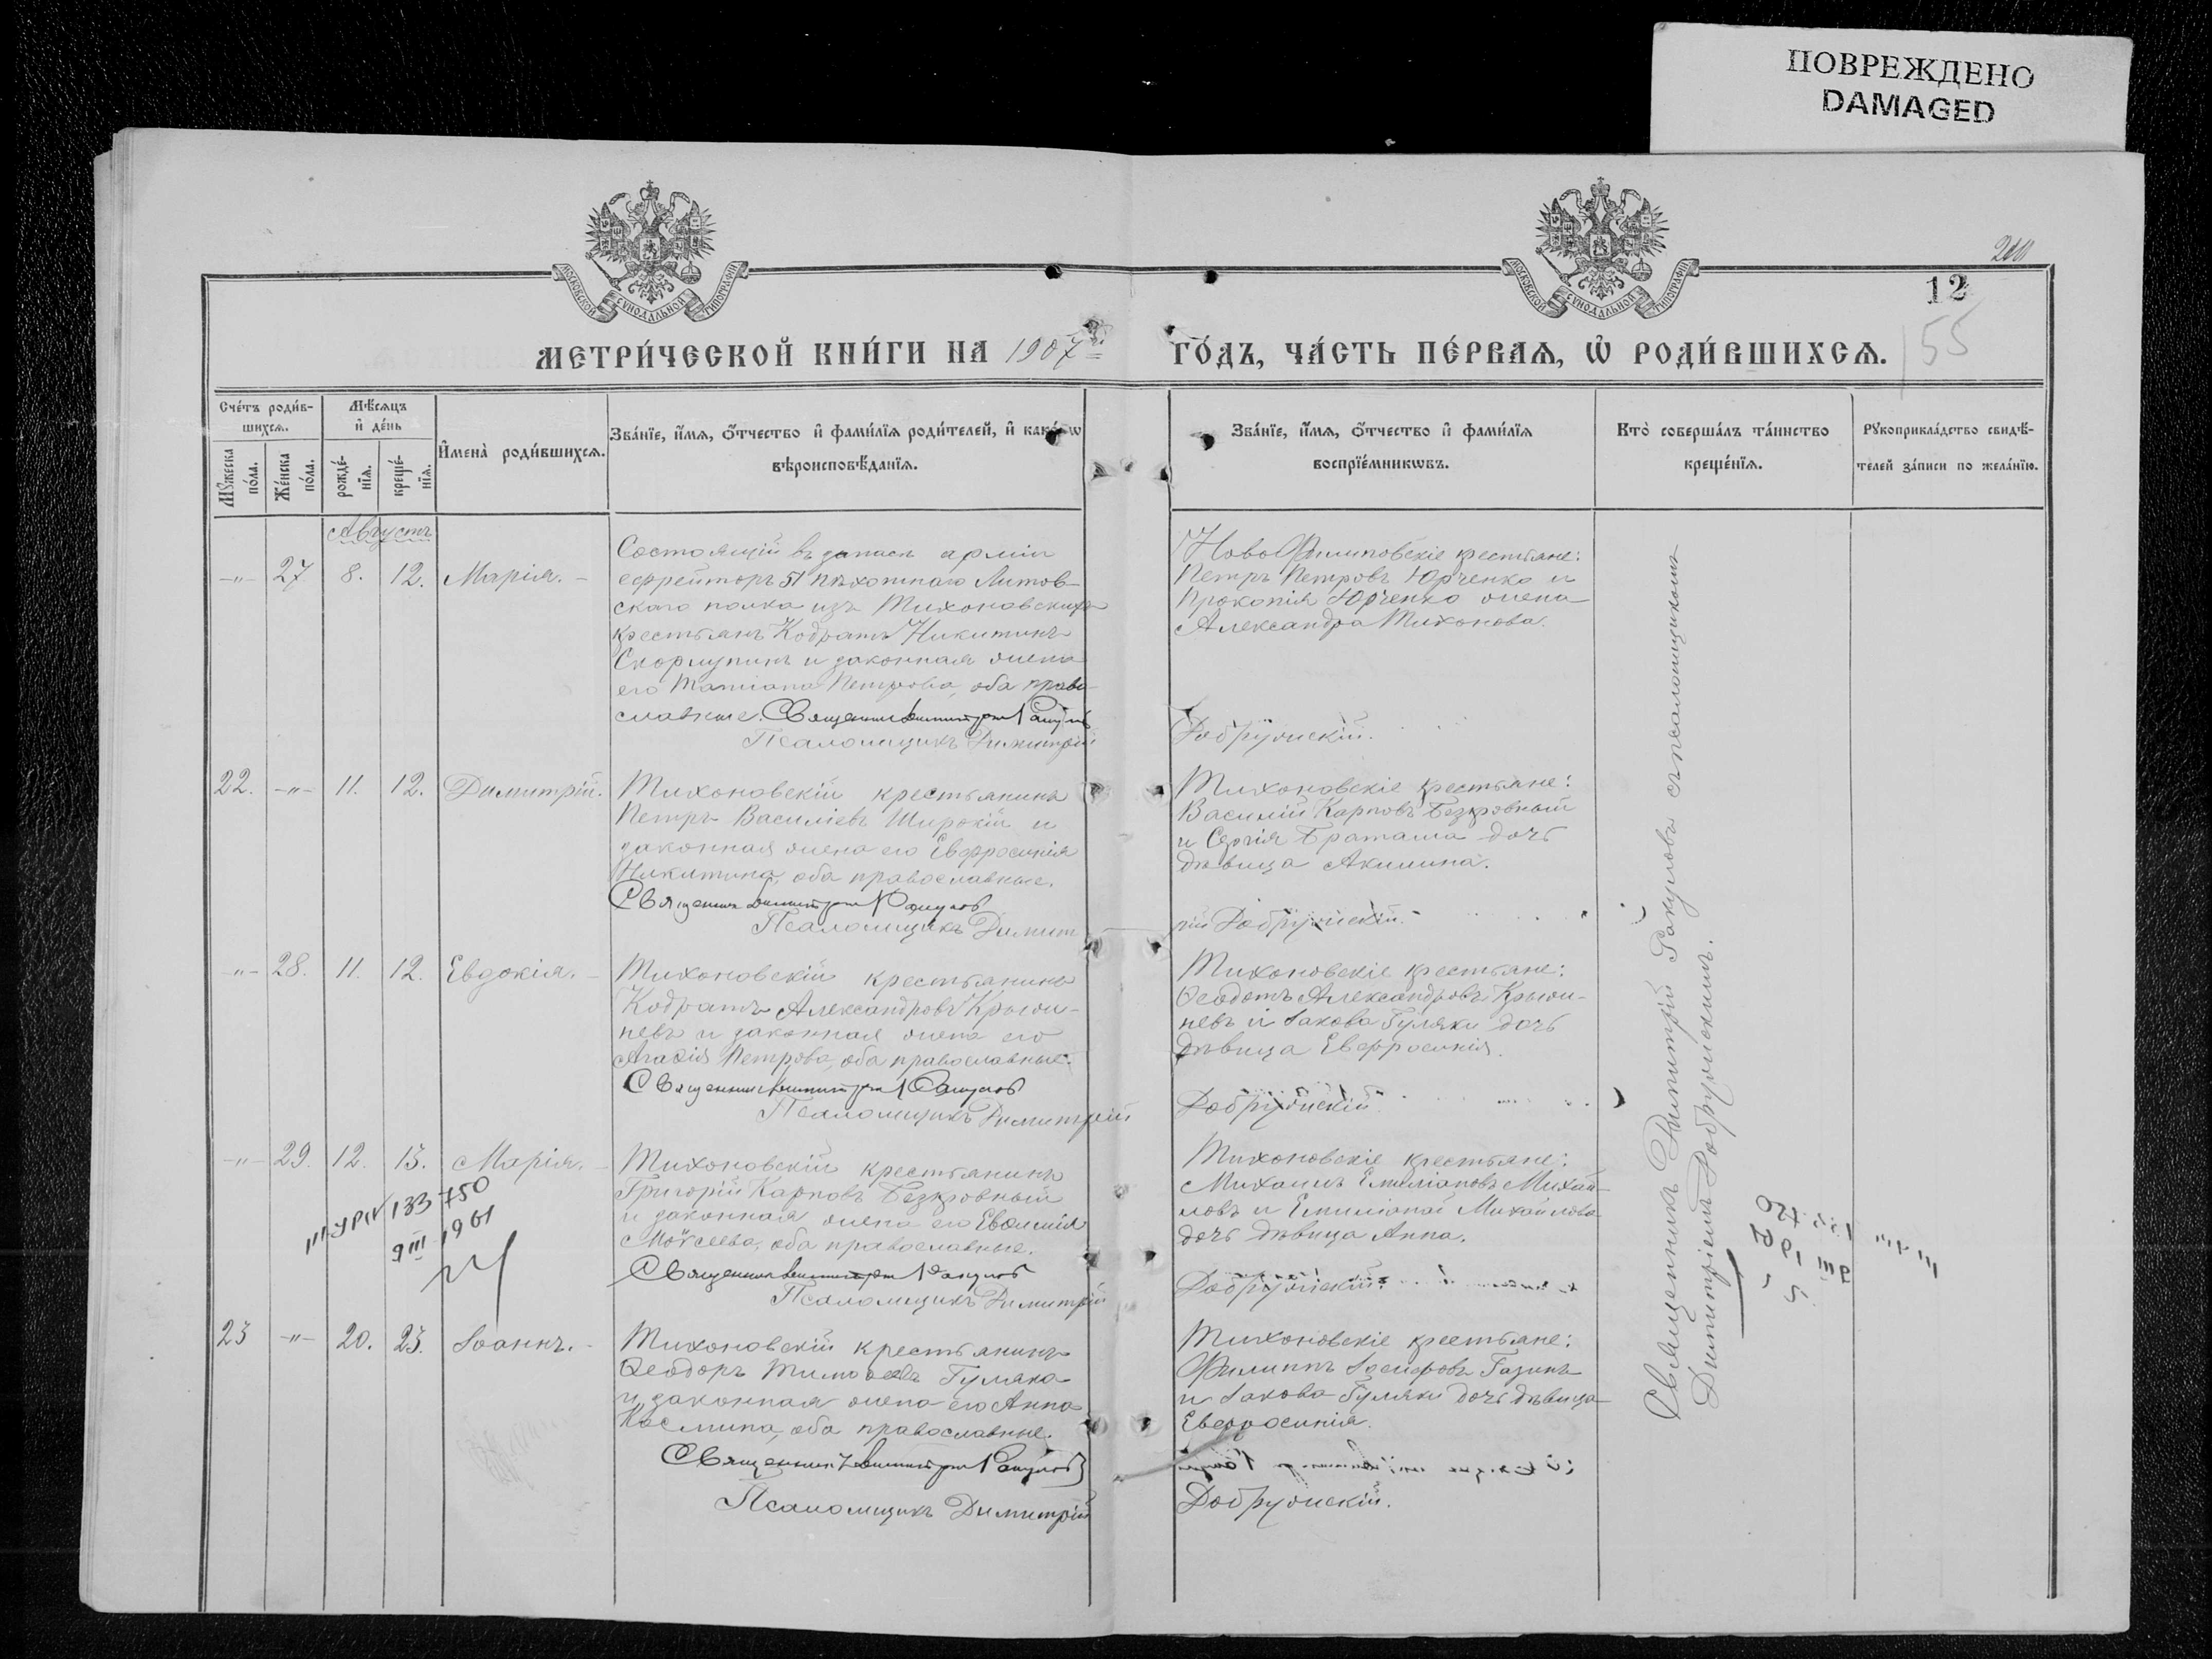 ПОВРЕЖДЕНО
DAMAGED
МОСКОВСКОЙ СѴНОДАЛЬНОЙ ТИПОГРАФІИ
МОСКОВСКОЙ СѴНОДАЛЬНОЙ ТИПОГРАФІИ
12
155
МЕТРИ́ЧЕСКОЙ КНИ́ГИ НА 1907 ГО́ДЪ, ЧА́СТЬ ПЕ́РВАѦ, Ѡ҆ РОДИ́ВШИХСѦ.
Сче́тъ роди́в-
шихсѧ.
Мꙋ́жеска по́ла.
Же́нска по́ла.
Мѣ́сѧцъ
и҆ де́нь
рожде́-
нїѧ.
креще́-
нїѧ.
И҆мена̀ роди́вшихсѧ.
Зва́нїе, и҆́мѧ, ѻ҆́тчество и҆ фами́лїѧ роди́телей, и҆ како́гѡ
вѣроисповѣ́данїѧ.
Зва́нїе, и҆́мѧ, ѻ҆́тчество и҆ фами́лїѧ
воспрїе́мникѡвъ.
Кто̀ соверша́лъ та́инство
креще́нїѧ.
Рꙋкоприкла́дство свидѣ́-
телей за́писи по жела́нїю.
Августъ
-"- 27 8. 12. Марія. -
Состоящій въ запасѣ арміи
ефрейторъ 51 пѣхотнаго Литов-
скаго полка изъ Тихоновскихъ
крестьянъ Кодратъ Никитинъ
и законная жена
его Татіана Петрова, оба право-
славные. Священник Димитрий Ракулов
Псаломщикъ Димитрій
Ново Филиповскіе крестьяне:
Петръ Петровъ Юрченко и
Прокопія Юрченко жена
Александра Тихонова.
Добружскій.
22. -"- 11. 12. Димитрій.
Тихоновскій крестьянинъ
Петръ Василіевъ Широкій и
законная жена его Евфросинія
Никитина, оба православные.
Священник Димитрий Ракулов
Псаломщикъ Димит
Тихоновскіе крестьяне:
Василій Карповъ Безкровный
и Сергія Браташа дочь
дѣвица Акилина.
рій Добружскій.
-"- 28. 11. 12. Евдокія. -
Тихоновскій крестьянинъ
Кодратъ Александровъ Крыжи-
невъ и законная жена его
Агафія Петрова, оба православные.
Священник Димитрий Ракулов
Псаломщикъ Димитрій
Тихоновскіе крестьяне:
Ѳеодотъ Александровъ Крыжи-
невъ и Іакова Гуляки дочь
дѣвица Евфросинія.
Добружскій.
-"- 29. 12. 15. Марія. -
Тихоновскій крестьянинъ
Григорій Карповъ Безкровный
и законная жена его Евѳимія
Моѵсеева, оба православные.
Священник Димитрий Ракулов
Псаломщикъ Димитрій
Тихоновскіе крестьяне:
Михаилъ Емиліановъ Михай-
ловъ и Емиліана Михайлова
дочь дѣвица Анна.
Добружскій.
133750
9 III 1961
23 -"- 20. 25. Іоаннъ. -
Тихоновскій крестьянинъ
Ѳеодоръ Тимоѳеевъ Гуляка
и законная жена его Анна
Космина, оба православные.
Священник Димитрий Ракулов
Псаломщикъ Димитрій
Тихоновскіе крестьяне:
Филиппъ Іосифовъ Газинъ
и Іакова Гуляки дочь дѣвица
Евфросинія.
Добружскій.
Священникъ Димитрій Ракуловъ съ псаломщикомъ
Димитріемъ Добружскимъ.